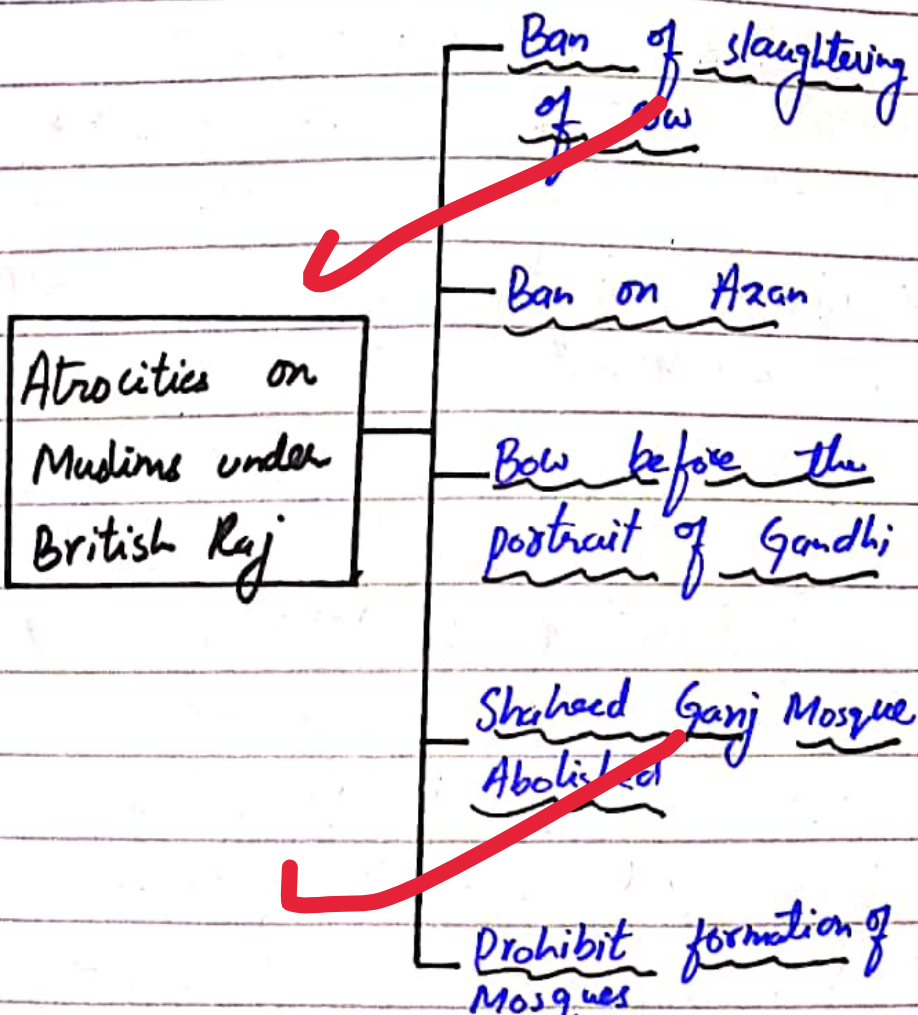 Atrocities on
Muslims under
British Raj
Ban of slaughtering
of cow
Ban on Azan
Bow before the
portrait of Gandhi
Shaheed Ganj Mosque
Abolished
Prohibit formation of
Mosques